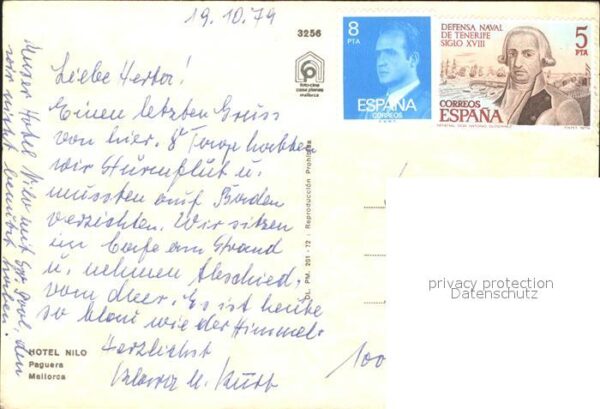 19.10.79
Liebe Herta!
Einen letzten Gruss
von hier. 8 Tage hatten
wir Sturmflut u.
mussten auf Baden
verzichten. Wir sitzen
im Cafe am Strand
u. nehmen Abschied
vom Meer. Es ist heute
so blau wie der Himmel.
Herzlichst
u. Kurt
Unser Hotel Nilo mit Pool, den
wir nicht benutzt haben.
HOTEL NILO
Paguera
Mallorca
3256
foto-cine
casa planas
mallorca
DL. PM. 201-72 : Reproducción Prohibida
8
PTA
ESPAÑA
CORREOS
DEFENSA NAVAL
DE TENERIFE
SIGLO XVIII
5
PTA
CORREOS
ESPAÑA
100
privacy protection
Datenschutz